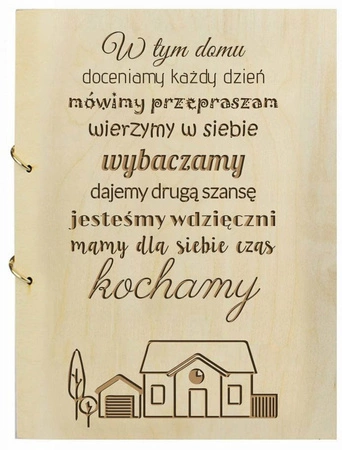 W tym domu
doceniamy każdy dzień
mówimy przepraszam
wierzymy w siebie
wybaczamy
dajemy drugą szansę
jesteśmy wdzięczni
mamy dla siebie czas
kochamy